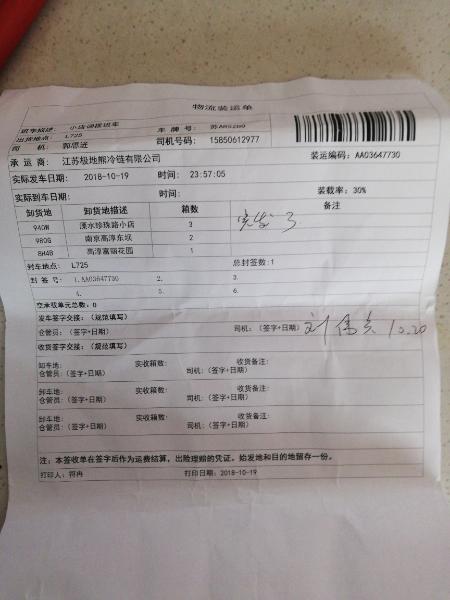 物流装运单
班车描述: 小店调拨班车 车牌号:
出货地点: L725
司 机: 司机号码: 15850612977
承 运 商: 江苏极地熊冷链有限公司 装运编码: AA03647730
实际发车日期: 2018-10-19 时间: 23:57:05
实际到车日期: 时间: 装载率: 30%
卸货地 卸货地描述 箱数 备注
940W 溧水珍珠路小店 3
980G 南京高淳东坝 2
8H4B 高淳富丽花园 1
封车地点: L725 总封签数:1
封 签 号: 1.AA03647730 2. 3.
4. 5. 6.
空承载单元总数: 0
发车签字交接: (规范填写)
仓管员: (签字+日期) 司机: (签字+日期) 10.20
收货签字交接: (规范填写)
卸车地: 实收箱数: 收货备注:
仓管员: (签字+日期) 司机: (签字+日期)
卸车地: 实收箱数: 收货备注:
仓管员: (签字+日期) 司机: (签字+日期)
卸车地: 实收箱数: 收货备注:
仓管员: (签字+日期) 司机: (签字+日期)
注: 本签收单在签字后作为运费结算, 出险理赔的凭证。始发地和目的地留存一份。
打印人: 符冉 打印日期: 2018-10-19